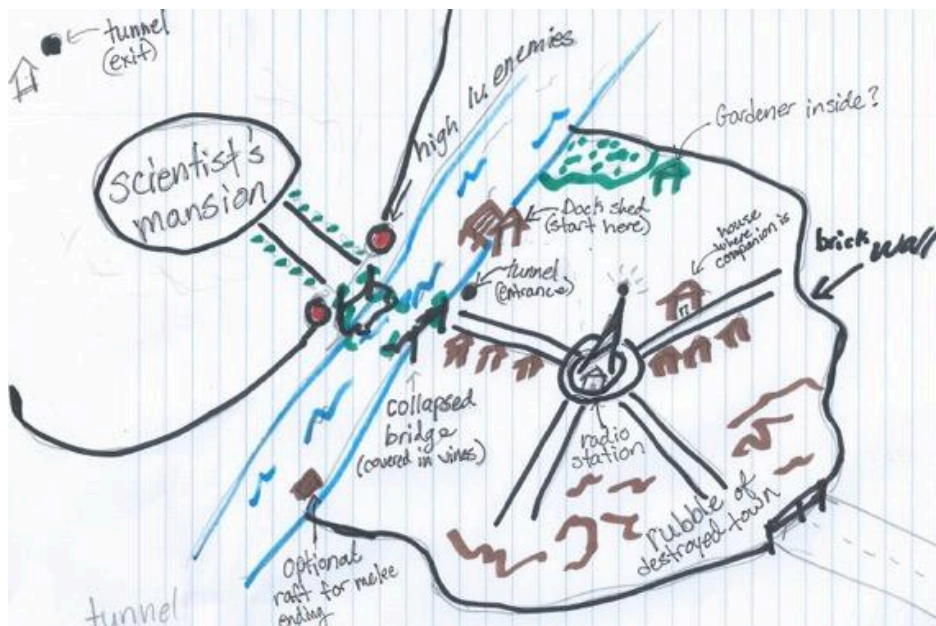 tunnel
(exit)
scientist's
mansion
high lv. enemies
Gardener inside?
Dock shed
(start here)
house
where
companion is
brick wall
tunnel
(entrance)
collapsed
bridge
(covered in vines)
radio
station
rubble of
destroyed town
Optional
raft for make
ending
tunnel